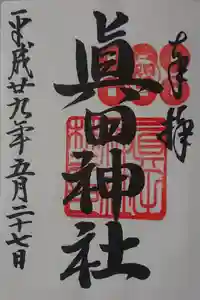 奉拝
眞田神社
平成廿九年五月二十七日